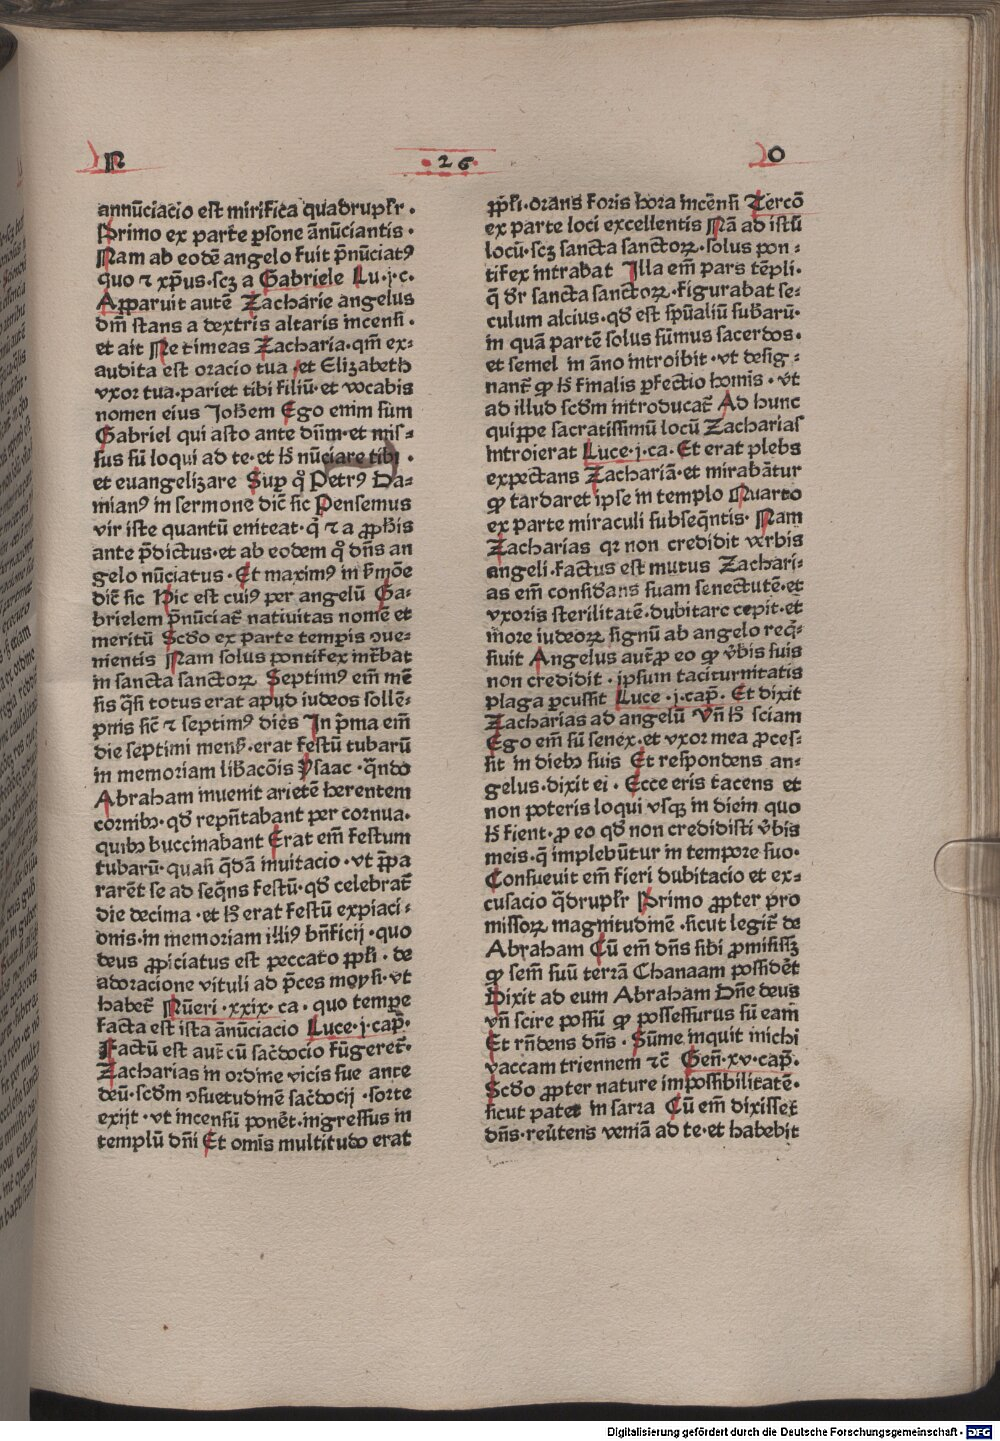 N
26
O
annūciacio est mirifica quadruplr̄.
Primo ex parte ꝑsone ānūciantis.
Nam ab eodē angelo fuit p̄nūciatꝰ
quo ⁊ xp̄us.scꝫ a Gabriele Lu.j.c.
Apparuit autē Zacharie angelus
dn̄i stans a dextris altaris incensi.
et ait Ne timeas Zacharia.qm̄ ex⸗
audita est oracio tua.et Elizabeth
vxor tua.pariet tibi filiū.et vocabis
nomen eius Joh̄em Ego enim sum
Gabriel qui asto ante dūm.et mis⸗
sus sū loqui ad te.et h̄ nūciare tibi.
et euangelizare Suꝑ qͦ Petrꝰ Da⸗
mianꝰ in sermone dic̄ sic Pensemus
vir iste quantū emiteat.qͥ ⁊ a ꝓph̄is
ante p̄dictus.et ab eodem qͦ dn̄s an
gelo nūciatus.Et maximꝰ in s̄mōe
dic̄ sic Hic est cuiꝰ per angelū Ga⸗
brielem p̄nūciat̄ natiuitas nomē et
meritū Scd̄o ex parte temꝑis ↄue⸗
nientis Nam solus pontifex int̄bat
in sancta sanctoꝝ Septimꝰ em̄ mē
sis qͣsi totus erat apud iudeos sollē⸗
pnis sic̄ ⁊ septimꝰ dies In p̄ma em̄
die septimi mens̄.erat festū tubarū
in memoriam lib̄acōis Ysaac.qn̄do
Abraham inuenit arietē herentem
cornibꝫ.qd̄ rep̄ntabant per cornua.
quibꝫ buccinabant Erat em̄ festum
tubarū.quasi qͣdā inuitacio.vt p̄pa
rarēt se ad seqn̄s festū.qd̄ celebrat̄
die decima.et h̄ erat festū expiaci⸗
onis.in memoriam illiꝰ bn̄ficij.quo
deus ꝓpiciatus est peccato ppl̄i.de
adoracione vituli ad p̄ces moysi.vt
habet̄ Nūeri.xxix.ca.quo tempe
facta est ista ānūciacio Luce.j.cap̄.
Factū est aut̄ cū sac̄docio fūgeret̄.
Zacharias in ordine vicis sue ante
deū.scd̄m ↄsuetudinē sac̄docij.sorte
exijt.vt incensū ponēt.ingressus in
templū dn̄i Et omīs multitudo erat
ppl̄i.orans foris hora incensi Tercō
ex parte loci excellentis Nā ad istū
locū.scꝫ sancta sanctoꝝ.solus pon⸗
tifex intrabat Illa em̄ pars tēpli.
q̄ dr̄ sancta sanctoꝝ.figurabat se⸗
culum alcius.qd̄ est spūaliū sub̄arū.
in quā partē solus sūmus sacerdos.
et semel in āno introibit.vt desig⸗
nant̄ ꝙ h̄ finalis ꝑfectio homīs.vt
ad illud scd̄m introducat̄ Ad hunc
quippe sacratissimū locū Zacharias
introierat Luce.j.ca.Et erat plebs
expectans Zachariā.et mirabātur
ꝙ tardaret ipse in templo Quarto
ex parte miraculi subseqn̄tis. Nam
Zacharias qꝛ non credidit verbis
angeli.factus est mutus Zachari⸗
as em̄ considans suam senectutē.et
vxoris sterilitatē.dubitare cepit.et
more iudeoꝝ signū ab angelo reqͥ⸗
siuit Angelus aut̄ ꝓ eo ꝙ v̄bis suis
non credidit.ipsum taciturnitatis
plaga ꝑcussit Luce.j.cap̄.Et dixit
Zacharias ad angelū Vn̄ h̄ sciam
Ego em̄ sū senex.et vxor mea ꝓces⸗
sit in diebꝫ suis Et respondens an⸗
gelus.dixit ei.Ecce eris tacens et
non poteris loqui vsqꝫ in diem quo
h̄ fient.ꝓ eo qd̄ non credidisti v̄bis
meis.q̄ implebūtur in tempore suo.
Consueuit em̄ fieri dubitacio et ex⸗
cusacio qͣdruplr̄ Primo ꝓpter pro
missoꝝ magnitudinē.sicut legit̄ de
Abraham Cū em̄ dn̄s sibi ꝓmisissꝫ
ꝙ sem̄ suū terrā Chanaam possidēt
Dixit ad eum Abraham Dn̄e deus
vn̄ scire possū ꝙ possessurus sū eam
Et rn̄dens dn̄s.Sūme inquit michi
vaccam triennem ⁊c̄ Gen̄.xv.cap̄.
Scd̄o ꝓpter nature impossibilitatē.
sicut patet in sarra Cū em̄ dixisset
dn̄s.reu̇tens veniā ad te.et habebit
Digitalisierung gefördert durch die Deutsche Forschungsgemeinschaft - DFG